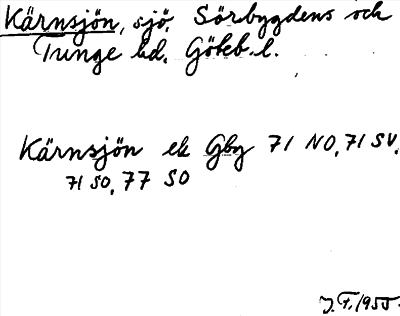 Kärnsjön, sjö. Sörbygdens och
Tunge hd. Göteb. l.
Kärnsjön ek Gbg 71 NO, 71 SV,
71 SO, 77 SO
J. F. 1955.